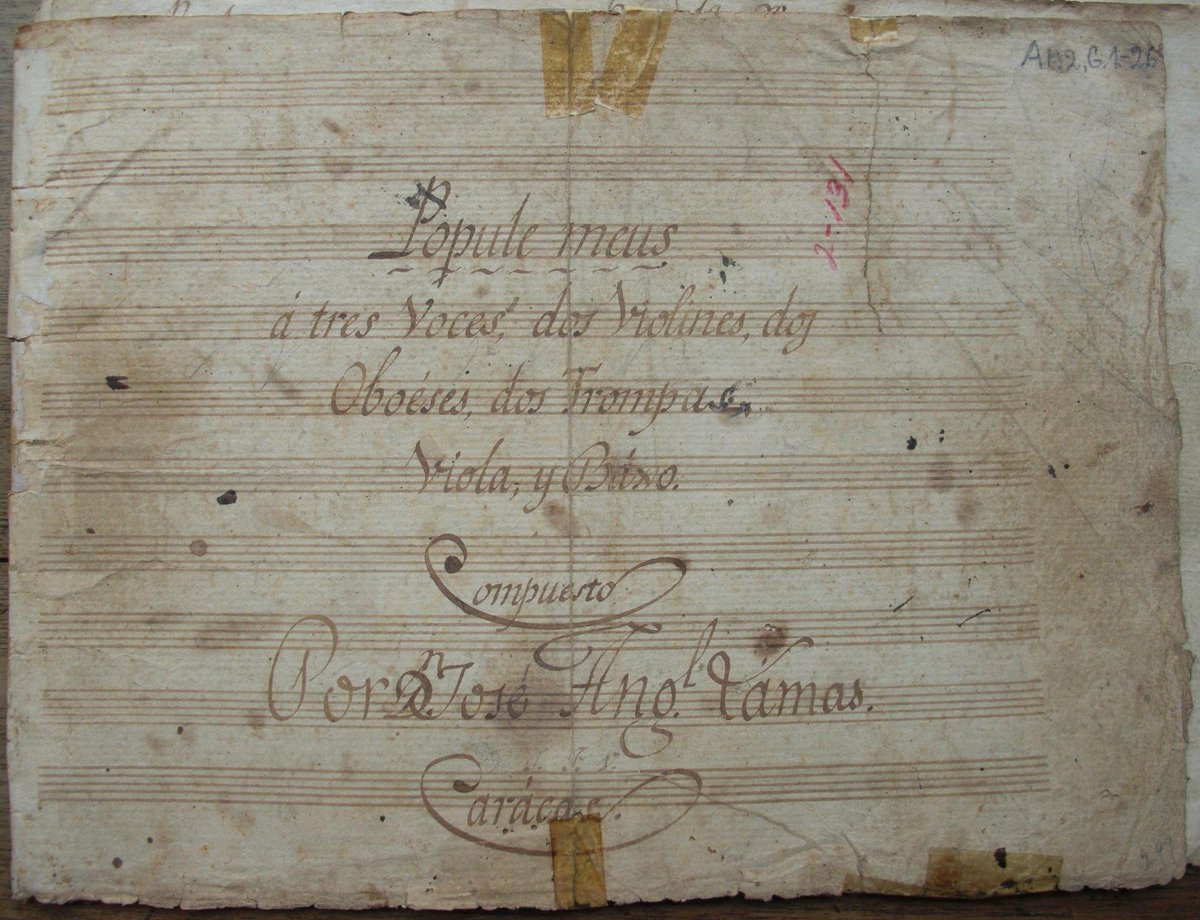 2-131
Popule meus
á tres Voces, dos Violines, dos
Oboéses, dos Trompas,
Viola, y Baxo.
Compuesto
Por Dn. José Angl. Lamas.
Carácas.